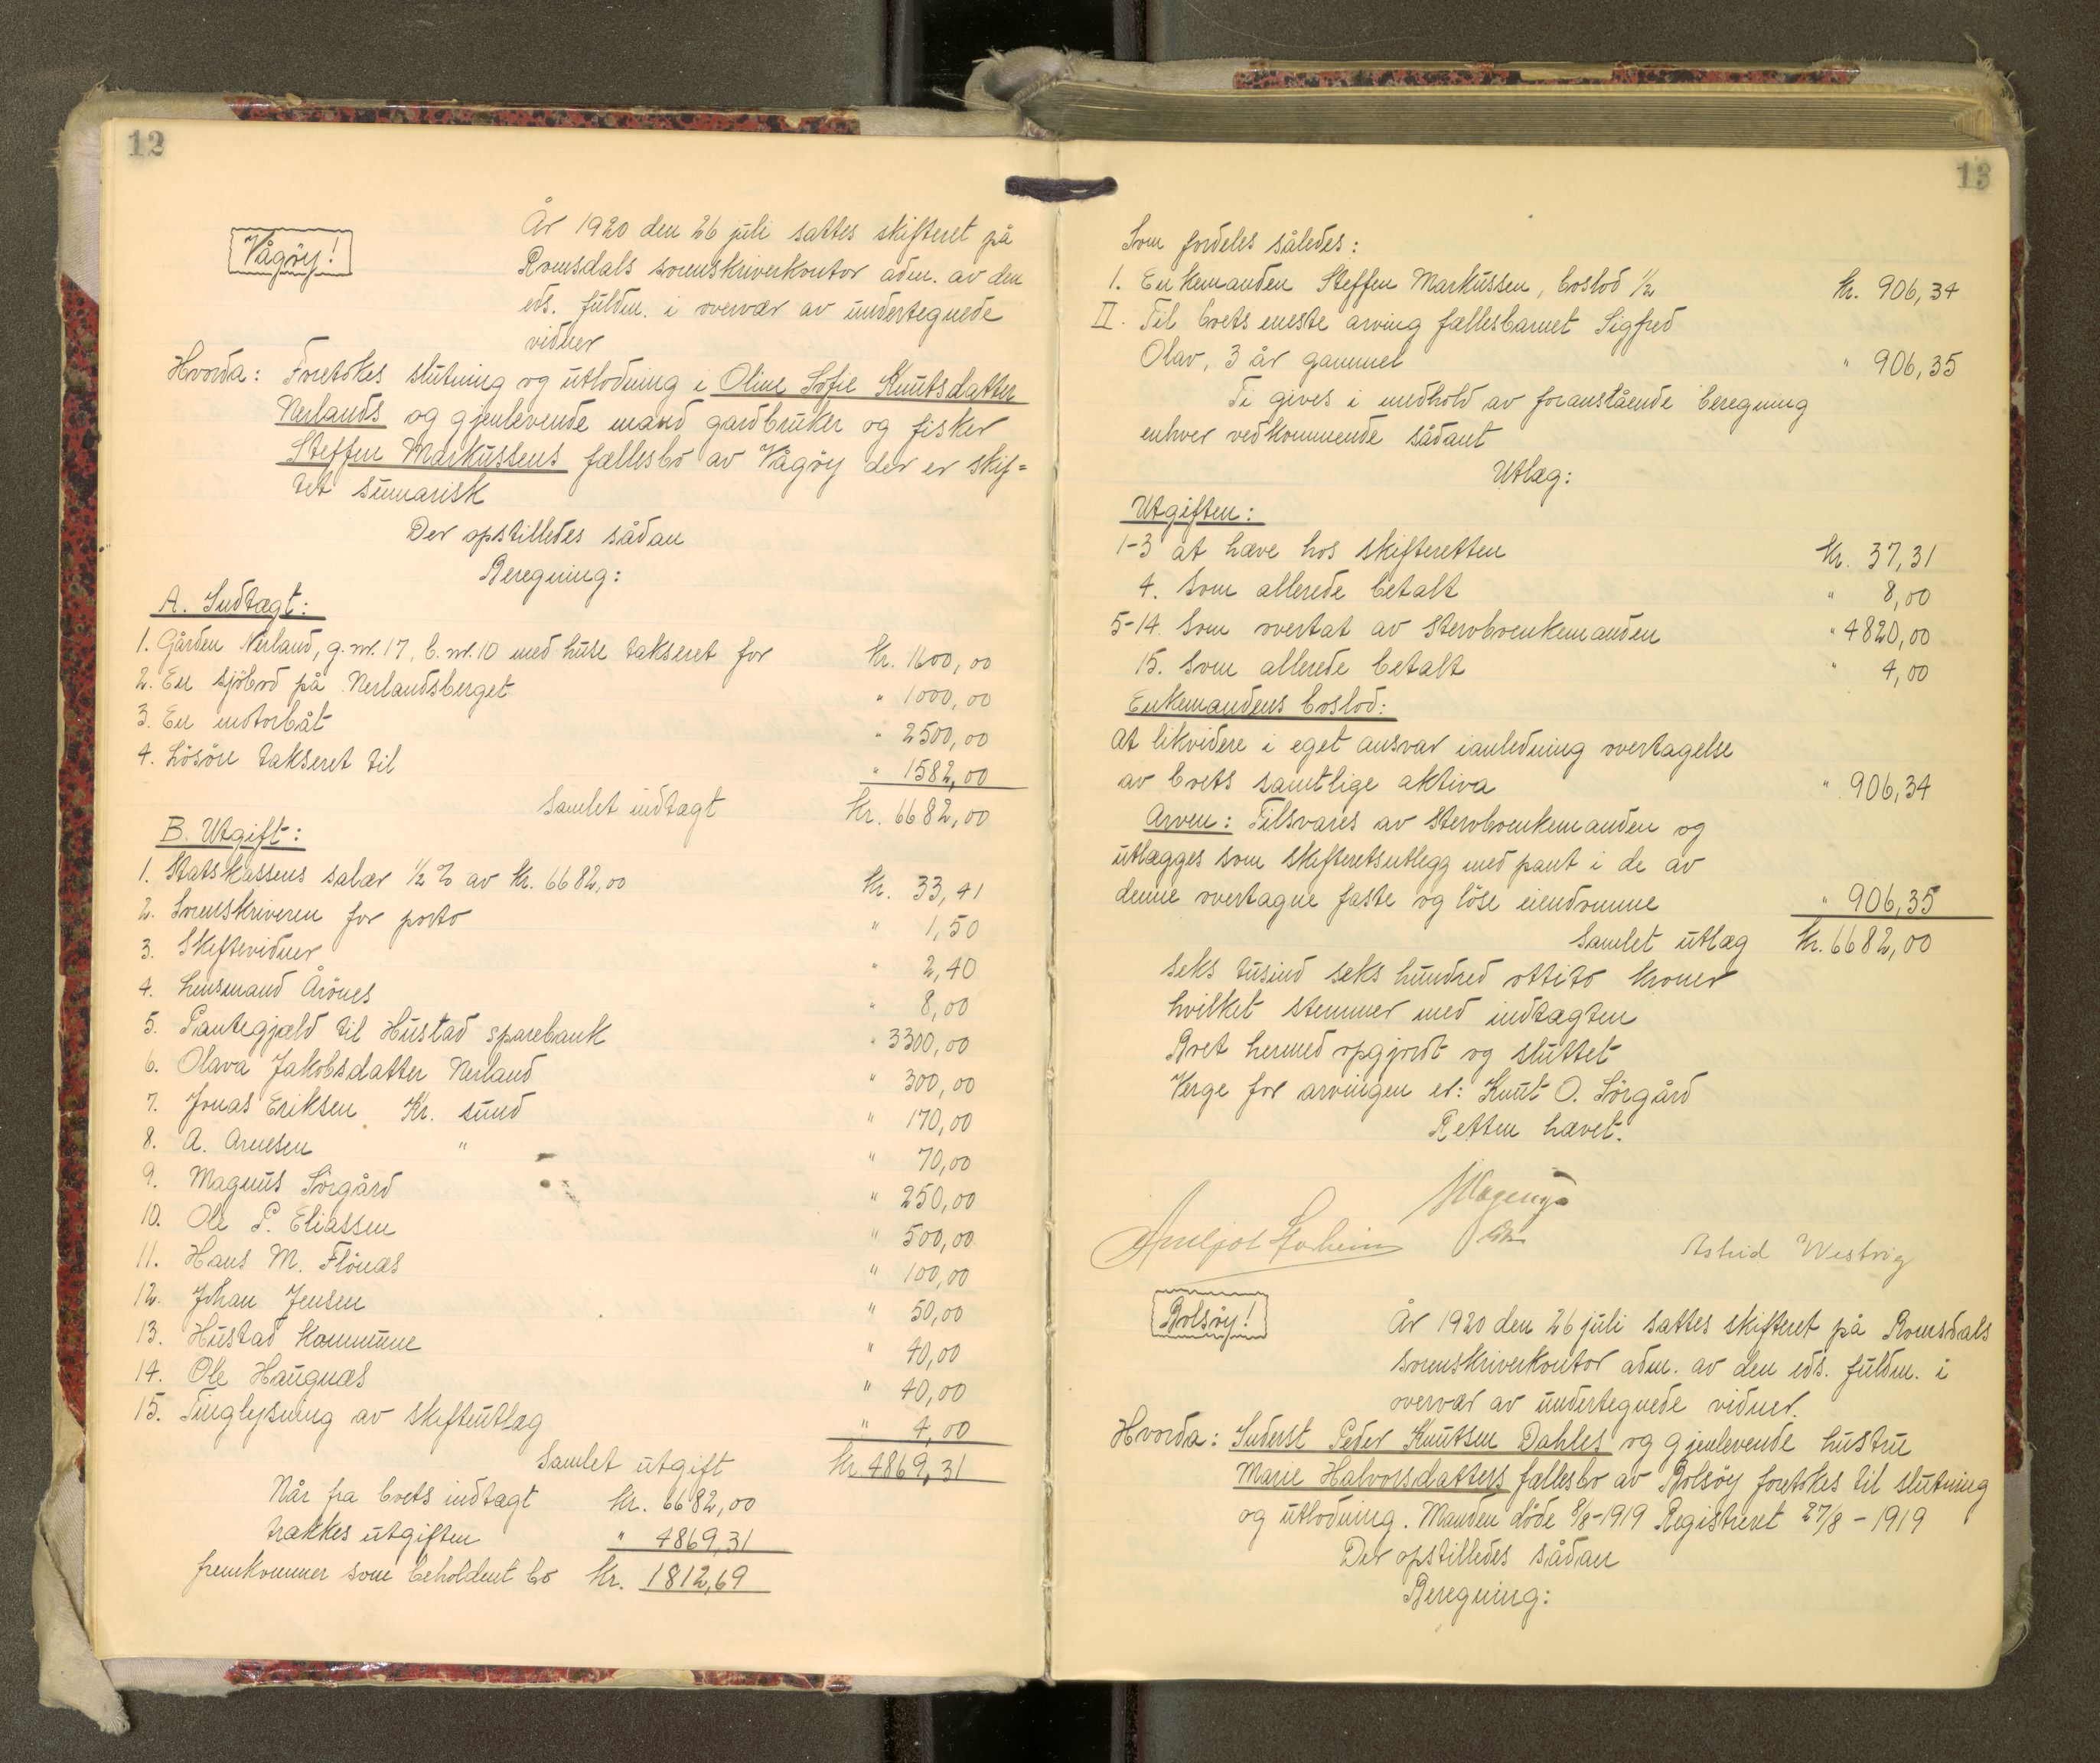 12
Vågöy!
År 1920 den 26 juli sattes skifteret på
Romsdals sorenskriverkontor adm. av den
eds. fuldm. i overvær av undertegnede
vidner
Hvorda: Foretokes slutning og utlodning i Oline Sofie Knutsdatter
Nerlands og gjenlevende mand gardbruker og fisker
Steffen Markussens fællesbo av Vågöy der er skif=
tet sumarisk
Der opstilledes sådan
Beregning:
A. Indtægt:
1. Gården Nerland, g.nr. 17, b.nr. 10 med huse takseret for Kr. 1600,00
2. En sjöbod på Nerlandsberget " 1000,00
3. En motorbåt " 2500,00
4. Lösöre takseret til " 1582,00
Samlet indtægt Kr. 6682,00
B. Utgift:
1. Statskassens salær ½ % av Kr. 6682,00 Kr. 33,41
2. Sorenskriveren for porto " 1,50
3. Skiftevidner " 2,40
4. Lensmand Årönes " 8,00
5. Pantegjæld til Hustad sparebank " 3300,00
6. Olava Jakobsdatter Nerland " 300,00
7. Jonas Eriksen Kr. sund " 170,00
8. A. Arnesen " " 70,00
9. Magnus Sörgård " 250,00
10. Ole P. Eliassen " 500,00
11. Hans M. Flönæs " 100,00
12. Johan Jensen " 50,00
13. Hustad kommune " 40,00
14. Ole Haugnæs " 40,00
15. Tinglysning av skifteutlæg " 4,00
Samlet utgift Kr. 4869,31
Når fra boets indtægt Kr. 6682,00
trækkes utgiften " 4869,31
fremkommer som beholdent bo Kr. 1812,69
13
Som fordeles således:
1. Enkemanden Steffen Markussen, boslod ½ Kr. 906,34
II. Til boets eneste arving fællesbarnet Sigfred
Olav, 3 år gammel " 906,35
Ti gives i medhold av foranstående beregning
enhver vedkommende sådant
Utlæg:
Utgiften:
1-3 at hæve hos skifteretten Kr. 37,31
4. som allerede betalt " 8,00
5-14. Som overtat av stervboenkemanden " 4820,00
15. Som allerede betalt " 4,00
Enkemandens boslod:
At likvidere i eget ansvar ianledning overtagelse
av boets samtlige aktiva " 906,34
Arven: Tilsvares av stervboenkemanden og
utlægges som skifteretsutlegg med pant i de av
denne overtagne faste og löse eiendomme " 906,35
Samlet utlæg Kr. 6682,00
seks tusind seks hundred ottito kroner
hvilket stemmer med indtægten
Boet hermed opgjordt og sluttet
Verge for arvingen er: Knut O. Sörgård
Retten hævet.
Astrid Westvig
Bolsöy!
År 1920 den 26 juli sattes skifteret på Romsdals
sorenskriverkontor adm. av den eds. fuldm. i
overvær av undertegnede vidner.
Hvorda: Inderst Peder Knutsen Dahles og gjenlevende hustru
Marie Halvorsdatters fællesbo av Bolsöy foretokes til slutning
og utlodning. Manden döde 8/8-1919 Registreret 27/8 - 1919
Der opstilledes sådan
Beregning: